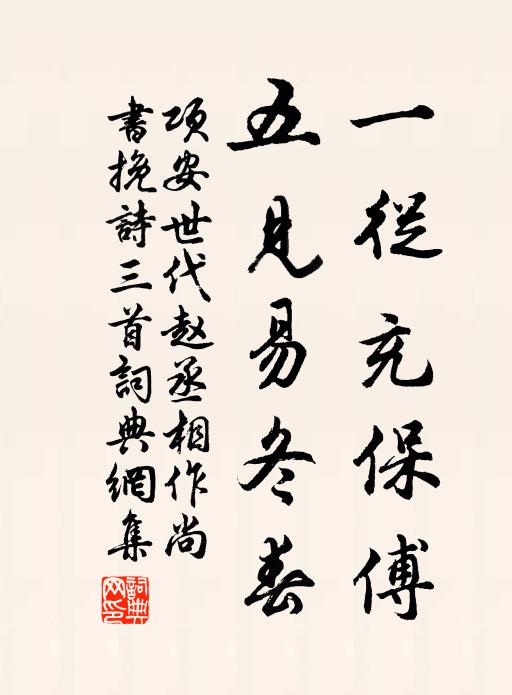 一從充保傅
五見易冬春
项安世代赵丞相作尚
書挽詩三首詞典網集
詞典網印